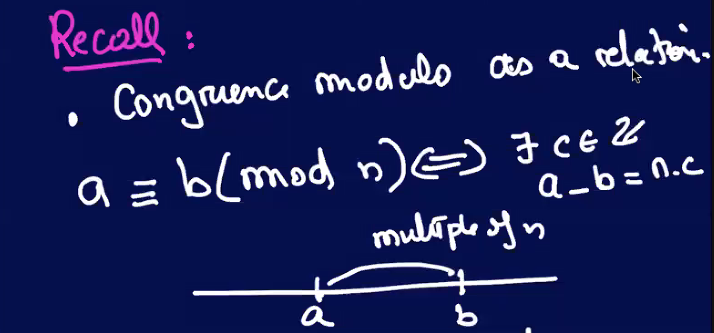 Recall :
• Congruence modulo as a relation.
a ≡ b (mod n) ⟺ ∃ c ∈ ℤ
a - b = n.c
multiple of n
a b